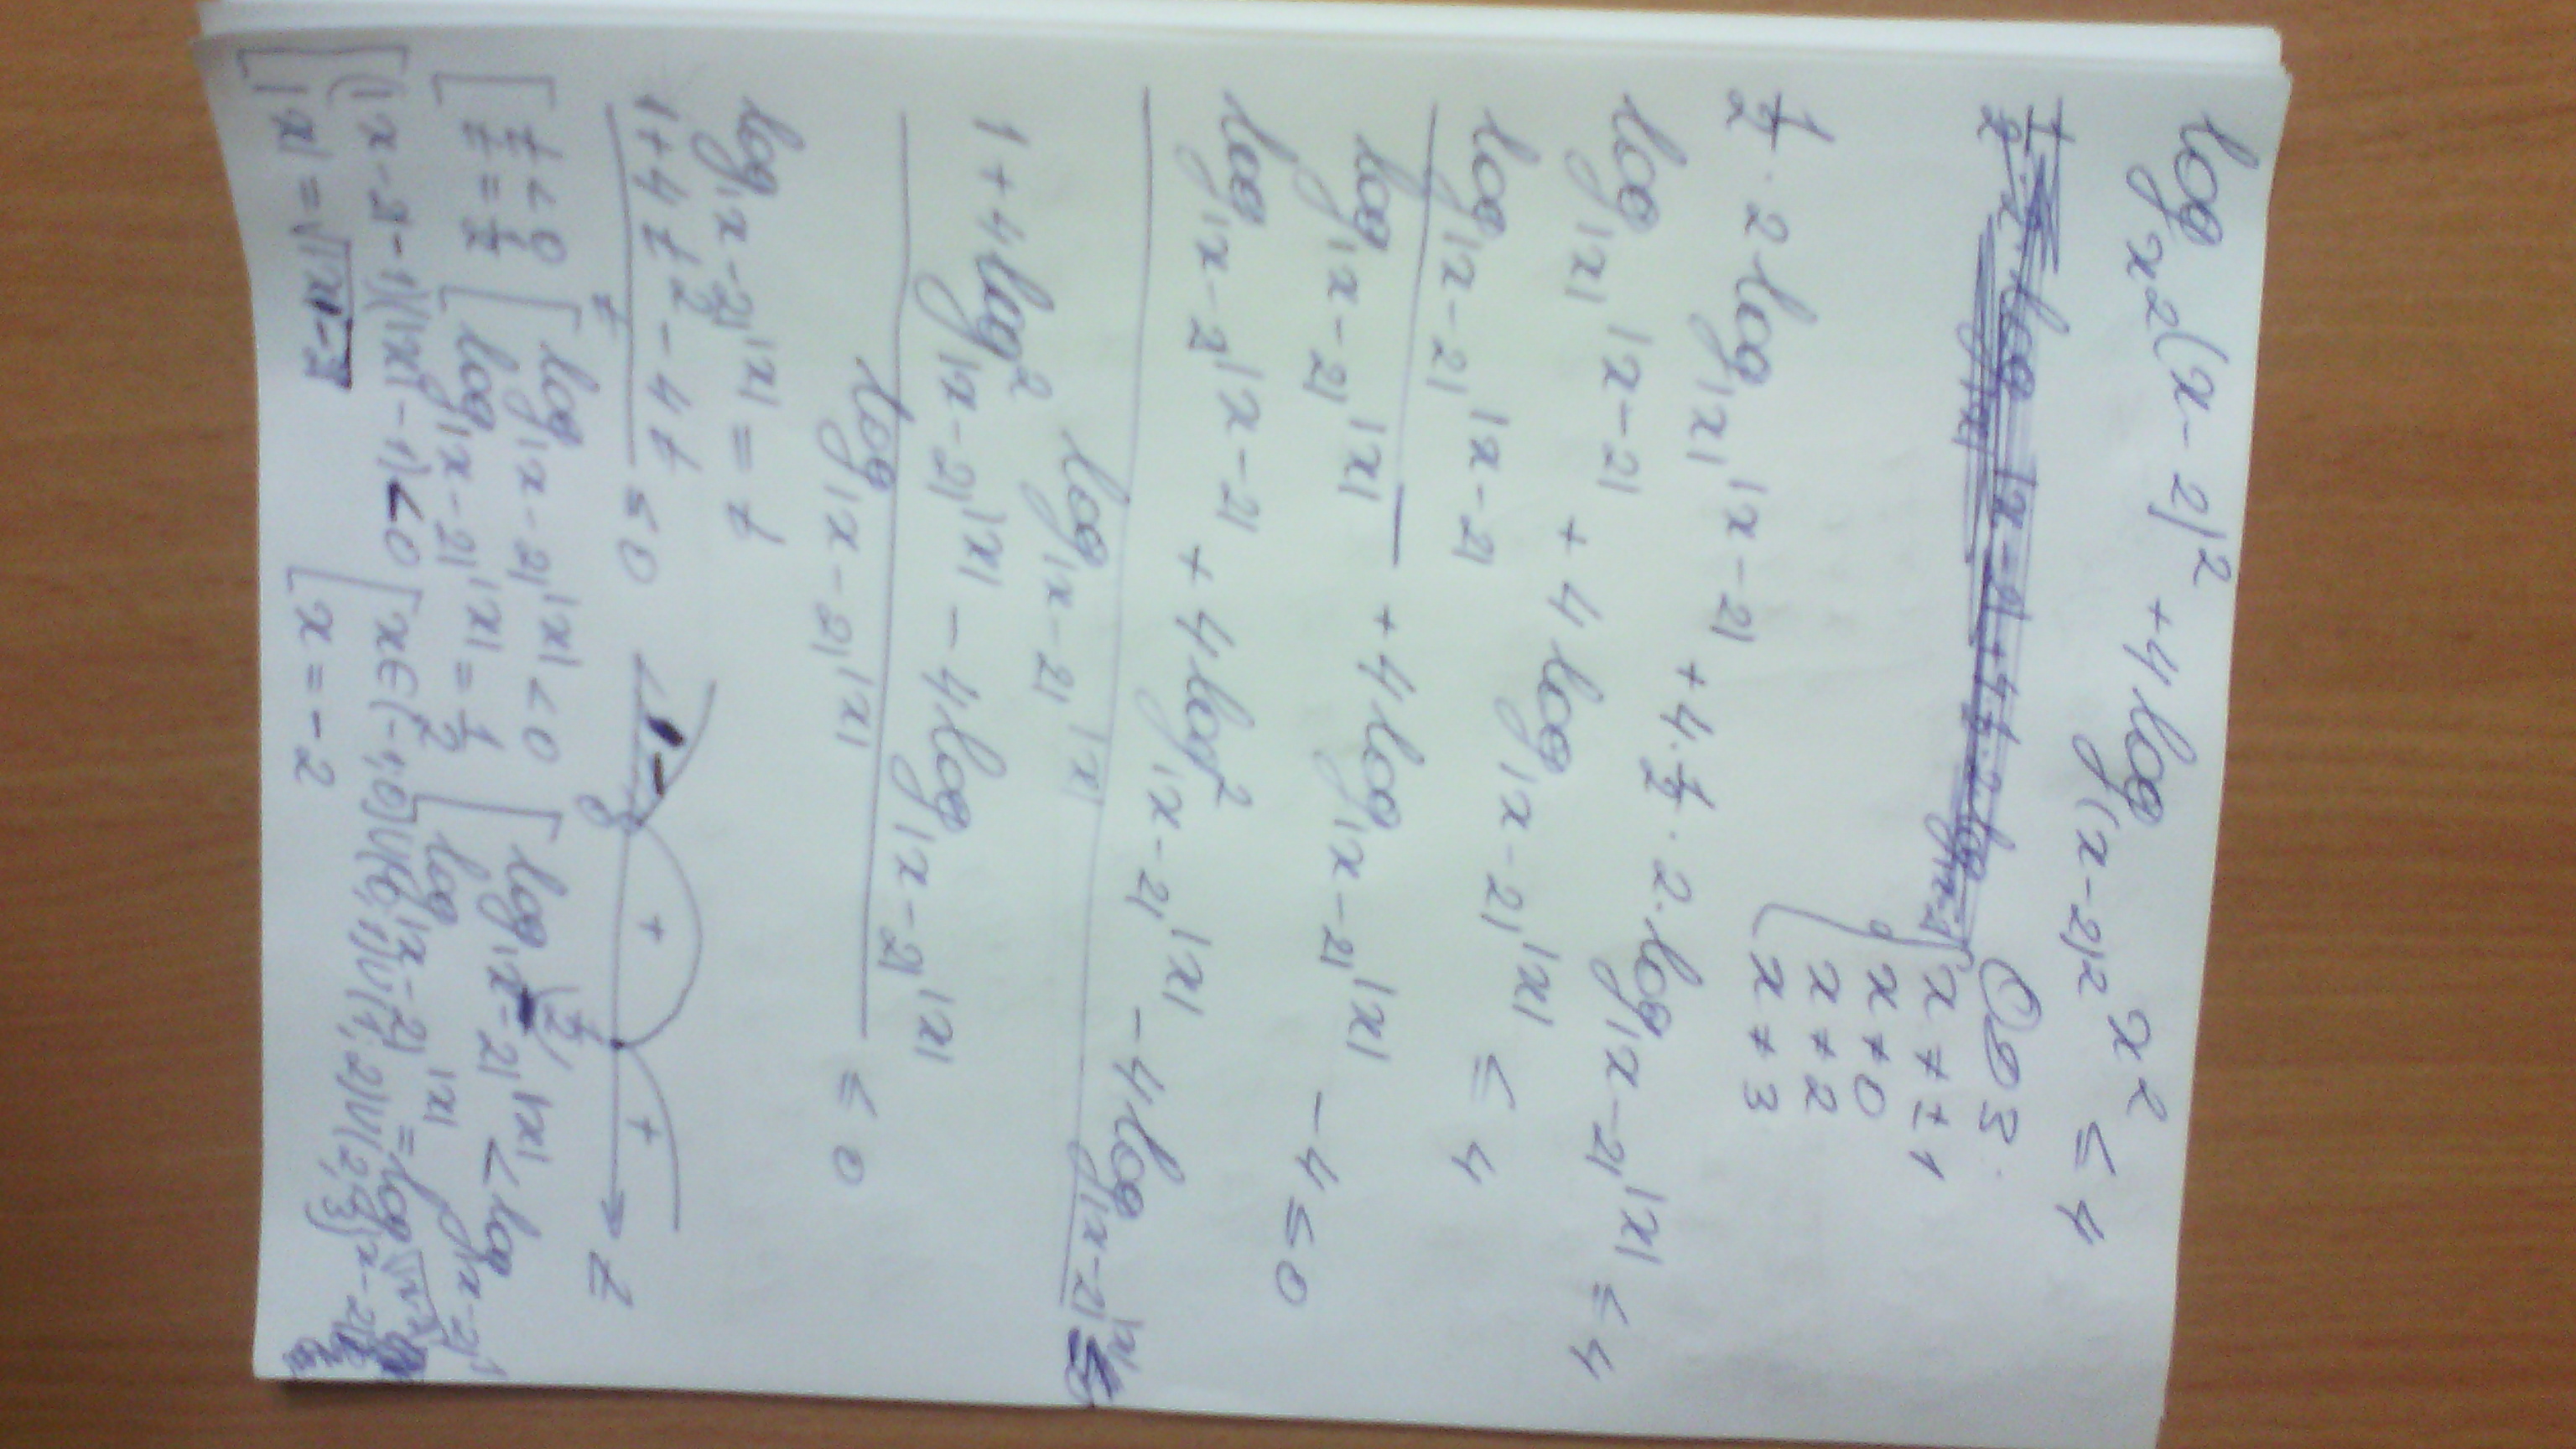 log_{x^2}(x-2)^2 + 4log_{(x-2)^2} x^2 ≤ 4
ОДЗ:
x ≠ ±1
x ≠ 0
x ≠ 2
x ≠ 3
1/2 · 2log_{|x|}|x-2| + 4 · 1/2 · 2 · log_{|x-2|}|x| ≤ 4
log_{|x|}|x-2| + 4log_{|x-2|}|x| ≤ 4
log_{|x-2|}|x-2| / log_{|x-2|}|x| + 4log_{|x-2|}|x| - 4 ≤ 0
log_{|x-2|}|x-2| + 4log^2_{|x-2|}|x| - 4log_{|x-2|}|x| / log_{|x-2|}|x|
1 + 4log^2_{|x-2|}|x| - 4log_{|x-2|}|x| / log_{|x-2|}|x| ≤ 0
log_{|x-2|}|x| = t
1 + 4t^2 - 4t / t ≤ 0
- 0 + 1/2 + t
[ t < 0 [ log_{|x-2|}|x| < 0 [ log_{|x-2|}|x| < log_{|x-2|}1
t = 1/2 log_{|x-2|}|x| = 1/2 log_{|x-2|}|x| = log
[ (|x-2|-1)(|x|-1) < 0 [ x ∈ (-1;0) ∪ (0;1) ∪ (1;2) ∪ (2;3)
x = -2